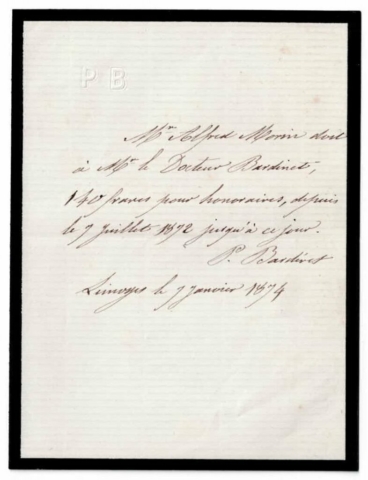 PB
Mr Alfred Morin doit
à Mr le Docteur Bardinet,
140 francs pour honoraires, depuis
le 7 juillet 1872 jusqu'à ce jour.
P. Bardinet
Limoges le 7 janvier 1874